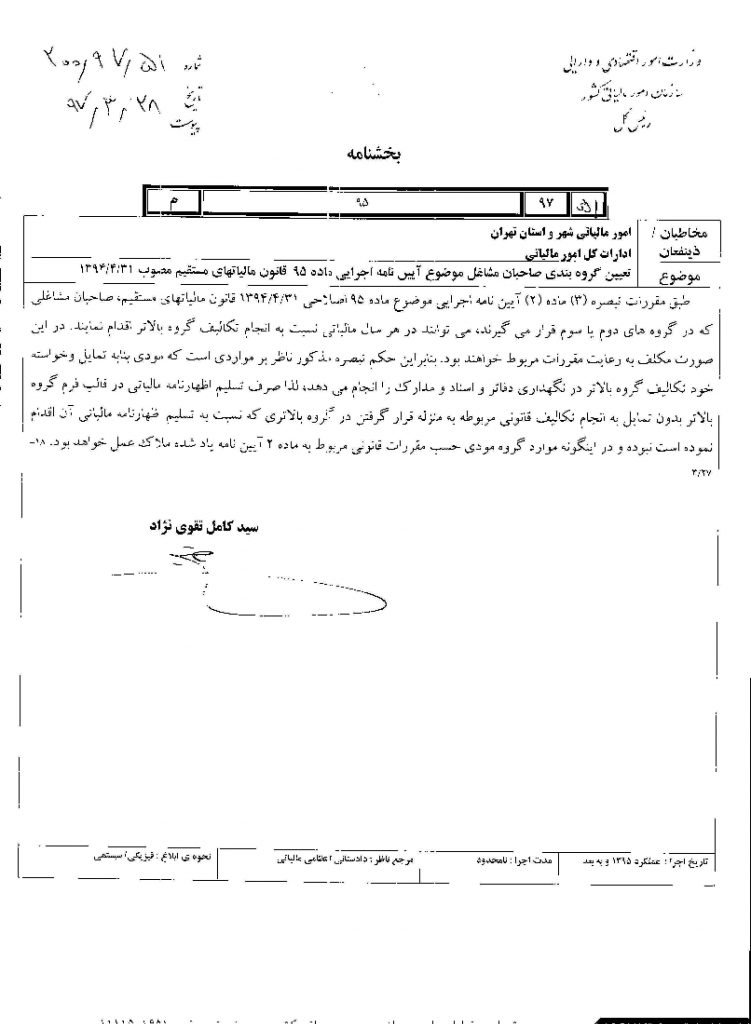 وزارت امور اقتصادی و دارایی
سازمان امور مالیاتی کشور
رئیس کل
شماره ۲۰۰/۹۷/۵۱
تاریخ ۹۷/۳/۲۸
پیوست
بخشنامه
۵۱ ۹۷ ۹۵ م
مخاطبان / ذینفعان
امور مالیاتی شهر و استان تهران
ادارات کل امور مالیاتی
موضوع تعیین گروه بندی صاحبان مشاغل موضوع آیین نامه اجرایی ماده ۹۵ قانون مالیاتهای مستقیم مصوب ۱۳۹۴/۴/۳۱
طبق مقررات تبصره (۳) ماده (۲) آیین نامه اجرایی موضوع ماده ۹۵ اصلاحی ۱۳۹۴/۴/۳۱ قانون مالیاتهای مستقیم، صاحبان مشاغلی
که در گروه های دوم یا سوم قرار می گیرند، می توانند در هر سال مالیاتی نسبت به انجام تکالیف گروه بالاتر اقدام نمایند. در این
صورت مکلف به رعایت مقررات مربوط خواهند بود. بنابراین حکم تبصره مذکور ناظر بر مواردی است که مودی بنابه تمایل وخواسته
خود تکالیف گروه بالاتر در نگهداری دفاتر و اسناد و مدارک را انجام می دهد، لذا صرف تسلیم اظهارنامه مالیاتی در قالب فرم گروه
بالاتر بدون تمایل به انجام تکالیف قانونی مربوطه به منزله قرار گرفتن در گروه بالاتری که نسبت به تسلیم اظهارنامه مالیاتی آن اقدام
نموده است نبوده و در اینگونه موارد گروه مودی حسب مقررات قانونی مربوط به ماده ۲ آیین نامه یاد شده ملاک عمل خواهد بود. ۱۸-
۳/۲۷
سید کامل تقوی نژاد
تاریخ اجرا : عملکرد ۱۳۹۵ و به بعد
مدت اجرا : نامحدود
مرجع ناظر : دادستانی انتظامی مالیاتی
نحوه ی ابلاغ : فیزیکی/ سیستمی